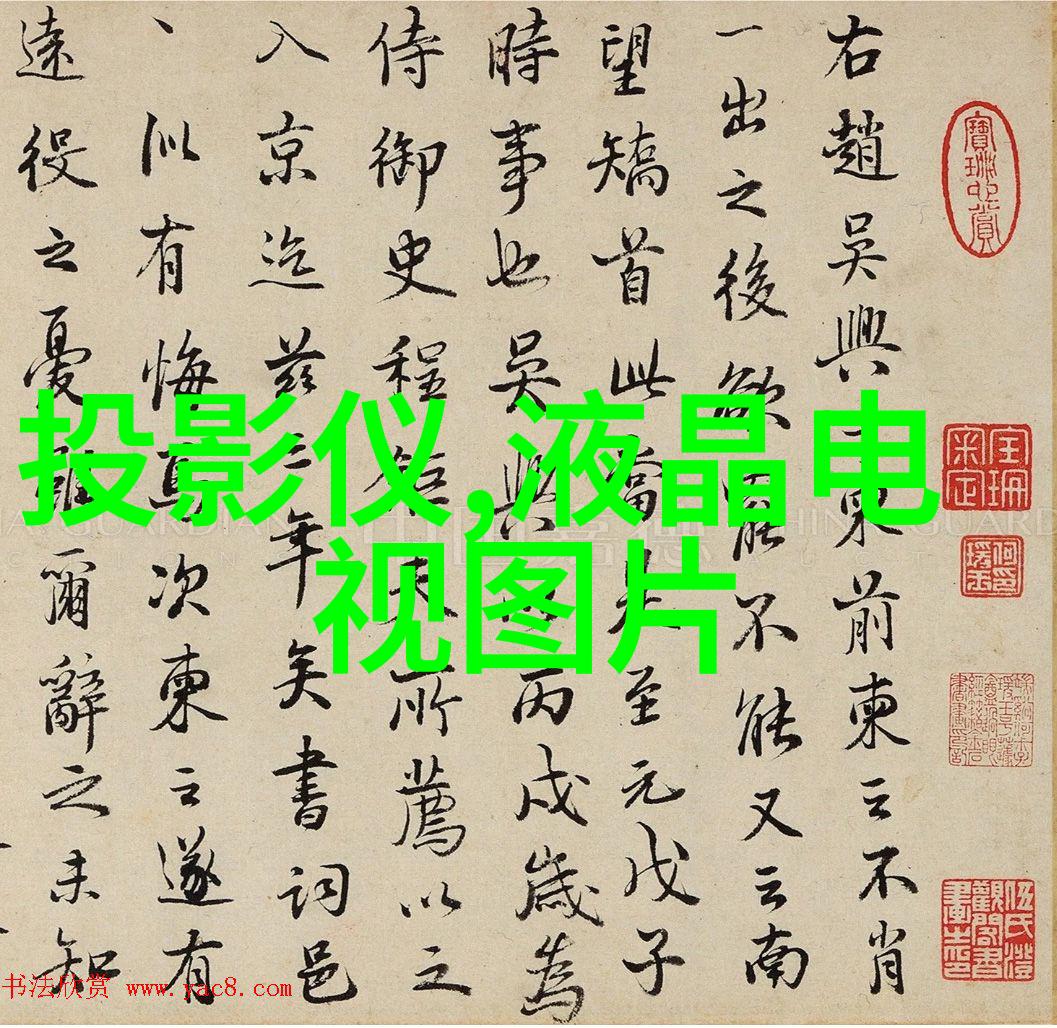 右趙吳興二柬前柬云不肖
一出之後欲罷不能又云南
望矯首此當在至元戊子
時事也吳興以丙戌歲為
侍御史程鉅夫所薦以之
入京迄茲三年矣書詞邑
、似有悔焉次柬云遂有
遠役之憂雖爾辭之未知
投影仪,液晶电
视图片
书法欣赏 www.yac8.com